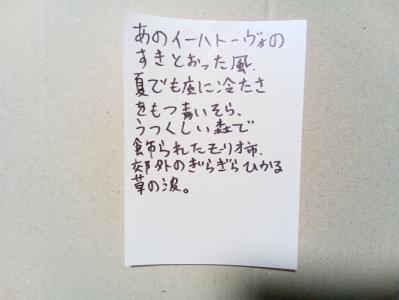 あのイーハトーヴォの
すきとおった風、
夏でも底に冷たさ
をもつ青いそら、
うつくしい森で
飾られたモリオ市、
郊外のぎらぎらひかる
草の波。